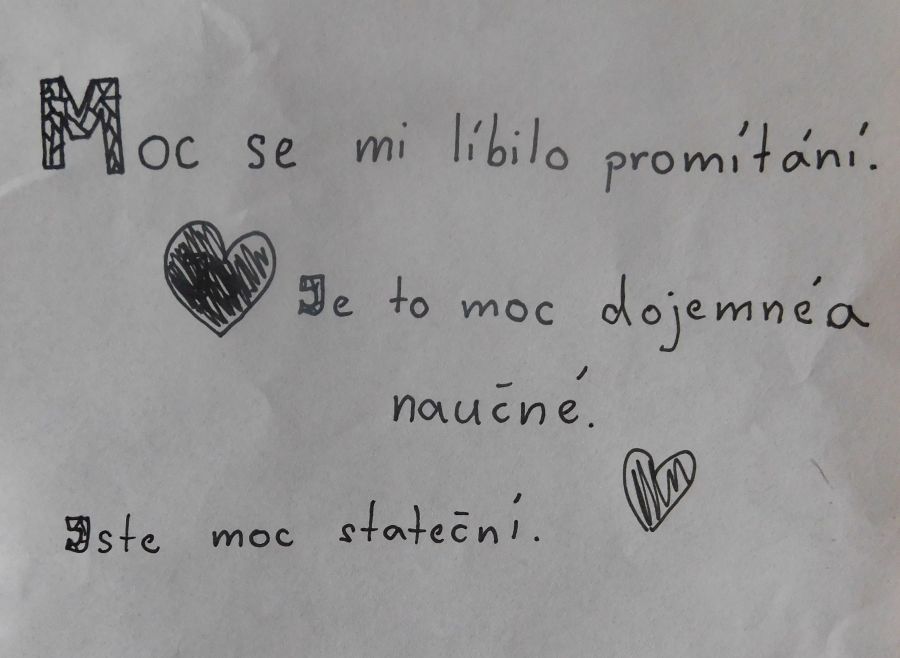 Moc se mi líbilo promítání.
Je to moc dojemné a
naučné.
Jste moc stateční.